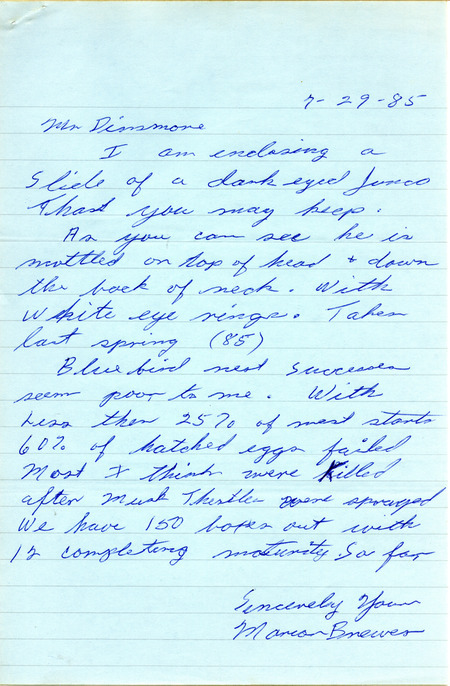 7-29-85
Mr Dinsmore
I am enclosing a
Slide of a dark eyed Junco
that you may keep.
As you can see he is
mottled on top of head + down
the back of neck. With
White eye rings. Taken
last spring (85)
Blue bird nest Successes
seem poor to me. With
Less then 25% of nest starts
60% of hatched eggs failed
Most I think were Killed
after Musk Thistles were sprayed
We have 150 boxes out with
12 completing maturity. So far
Sincerely Yours
Marion Brewer